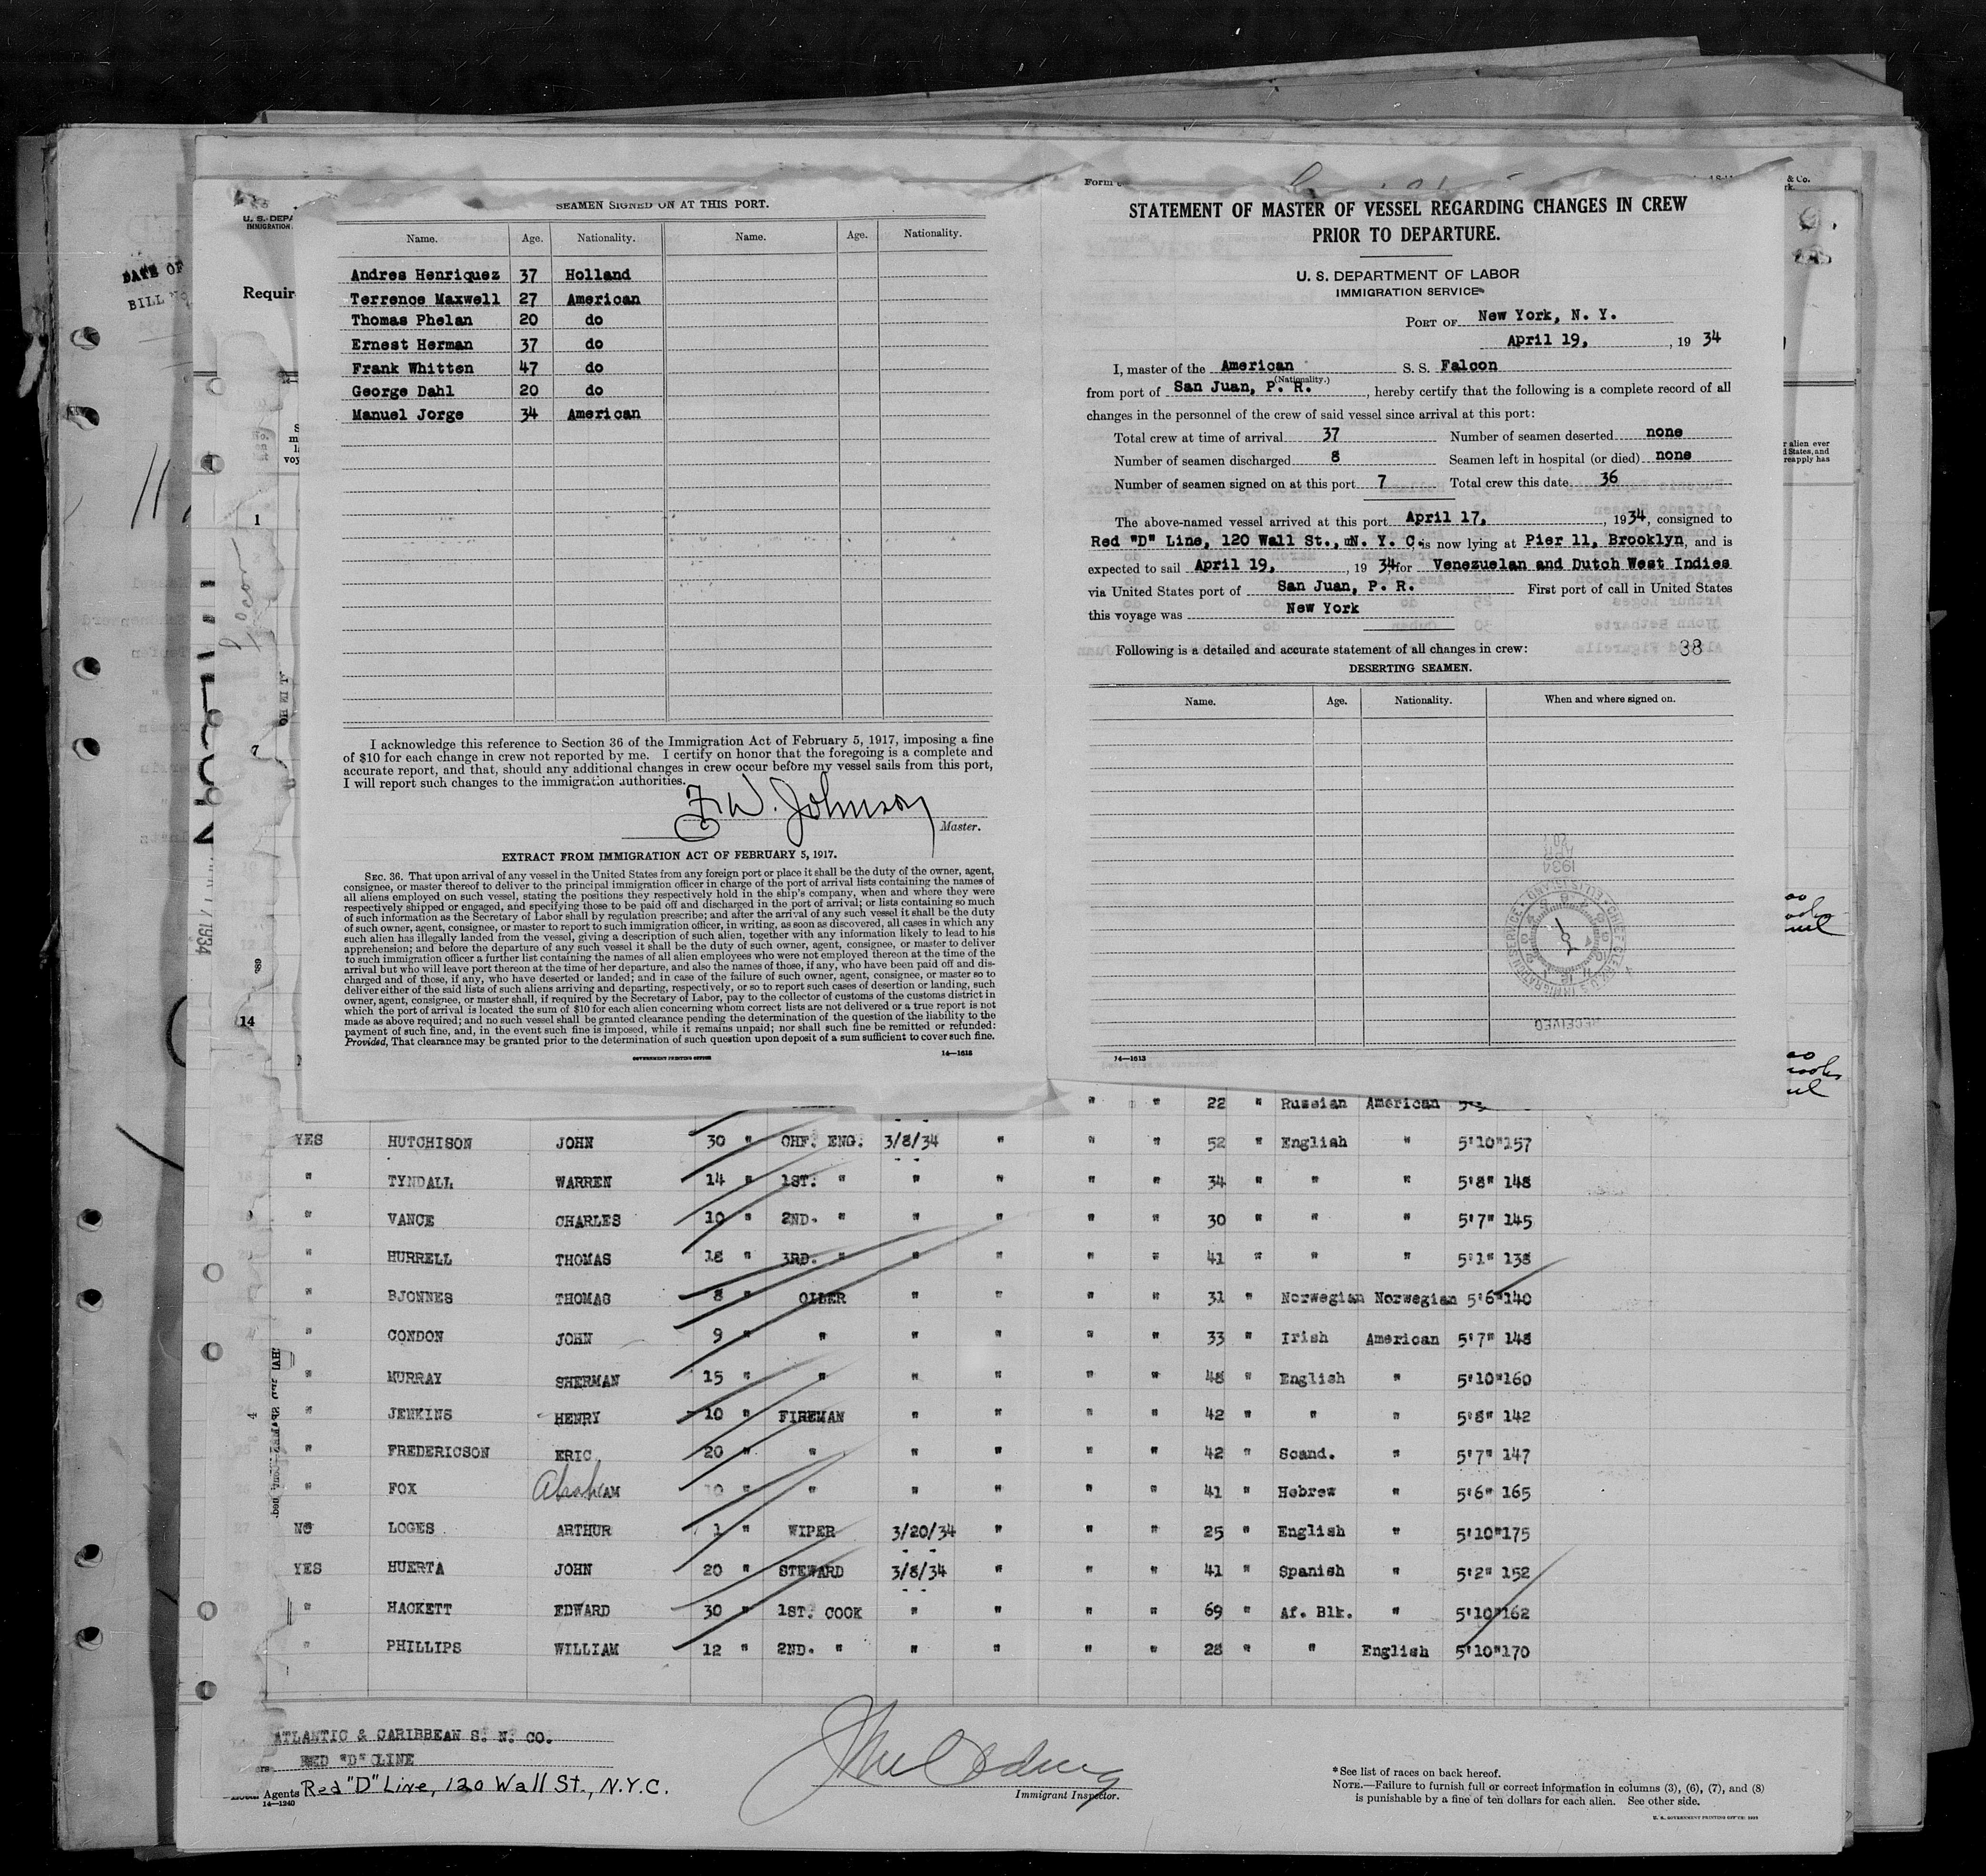 SEAMEN SIGNED ON AT THIS PORT.
Name. Age. Nationality. Name. Age. Nationality.
Andres Henriquez 37 Holland
Terrence Maxwell 27 American
Thomas Phelan 20 do
Ernest Herman 37 do
Frank Whitten 47 do
George Dahl 20 do
Manuel Jorge 34 American
I acknowledge this reference to Section 36 of the Immigration Act of February 5, 1917, imposing a fine
of $10 for each change in crew not reported by me. I certify on honor that the foregoing is a complete and
accurate report, and that, should any additional changes in crew occur before my vessel sails from this port,
I will report such changes to the immigration authorities.
F. W. Johnson
Master.
EXTRACT FROM IMMIGRATION ACT OF FEBRUARY 5, 1917.
SEC. 36. That upon arrival of any vessel in the United States from any foreign port or place it shall be the duty of the owner, agent,
consignee, or master thereof to deliver to the principal immigration officer in charge of the port of arrival lists containing the names of
all aliens employed on such vessel, stating the positions they respectively hold in the ship's company, when and where they were
respectively shipped or engaged, and specifying those to be paid off and discharged in the port of arrival; or lists containing so much
of such information as the Secretary of Labor shall by regulation prescribe; and after the arrival of any such vessel it shall be the duty
of such owner, agent, consignee, or master to report to such immigration officer, in writing, as soon as discovered, all cases in which any
such alien has illegally landed from the vessel, giving a description of such alien, together with any information likely to lead to his
apprehension; and before the departure of any such vessel it shall be the duty of such owner, agent, consignee, or master to deliver
to such immigration officer a further list containing the names of all alien employees who were not employed thereon at the time of the
arrival but who will leave port thereon at the time of her departure, and also the names of those, if any, who have been paid off and dis-
charged and of those, if any, who have deserted or landed; and in case of the failure of such owner, agent, consignee, or master so to
deliver either of the said lists of such aliens arriving and departing, respectively, or so to report such cases of desertion or landing, such
owner, agent, consignee, or master shall, if required by the Secretary of Labor, pay to the collector of customs of the customs district in
which the port of arrival is located the sum of $10 for each alien concerning whom correct lists are not delivered or a true report is not
made as above required; and no such vessel shall be granted clearance pending the determination of the question of the liability to the
payment of such fine, and, in the event such fine is imposed, while it remains unpaid; nor shall such fine be remitted or refunded:
Provided, That clearance may be granted prior to the determination of such question upon deposit of a sum sufficient to cover such fine.
GOVERNMENT PRINTING OFFICE 14—1613
Form
STATEMENT OF MASTER OF VESSEL REGARDING CHANGES IN CREW
PRIOR TO DEPARTURE.
U. S. DEPARTMENT OF LABOR
IMMIGRATION SERVICE
PORT OF New York, N. Y.
April 19, , 19 34
I, master of the American S. S. Falcon
(Nationality.)
from port of San Juan, P. R. , hereby certify that the following is a complete record of all
changes in the personnel of the crew of said vessel since arrival at this port:
Total crew at time of arrival 37 Number of seamen deserted none
Number of seamen discharged 8 Seamen left in hospital (or died) none
Number of seamen signed on at this port 7 Total crew this date 36
The above-named vessel arrived at this port April 17, , 1934, consigned to
Red "D" Line, 120 Wall St., N. Y. C. is now lying at Pier 11, Brooklyn, and is
expected to sail April 19, , 19 34, for Venezuelan and Dutch West Indies
via United States port of San Juan, P. R. First port of call in United States
this voyage was New York
Following is a detailed and accurate statement of all changes in crew: 38
DESERTING SEAMEN.
Name. Age. Nationality. When and where signed on.
RECEIVED
14—1613
U. S. DEPA
IMMIGRATION
DATE OF
BILL NO
Requir
1
7
14
& Co.
r alien ever
d States, and
reapply has
" " 22 " Russian American
YES HUTCHISON JOHN 30 " CHF. ENG. 3/8/34 " " " 52 " English " 5'10" 157
" TYNDALL WARREN 14 " 1ST. " " " " " 34 " " " 5'8" 148
" VANCE CHARLES 10 " 2ND. " " " " " 30 " " " 5'7" 145
" HURRELL THOMAS 18 " 3RD. " " " " " 41 " " " 5'1" 138
" BJONNES THOMAS 8 " OILER " " " " 31 " Norwegian Norwegian 5'6" 140
" CONDON JOHN 9 " " " " " " 33 " Irish American 5'7" 148
" MURRAY SHERMAN 15 " " " " " " 48 " English " 5'10" 160
" JENKINS HENRY 10 " FIREMAN " " " " 42 " " " 5'8" 142
" FREDERICSON ERIC 20 " " " " " " 42 " Scand. " 5'7" 147
" FOX Abraham 10 " " " " " " 41 " Hebrew " 5'6" 165
NO LOGES ARTHUR 1 " WIPER 3/20/34 " " " 25 " English " 5'10" 175
YES HUERTA JOHN 20 " STEWARD 3/8/34 " " " 41 " Spanish " 5'2" 152
" HACKETT EDWARD 30 " 1ST. COOK " " " " 69 " Af. Blk. " 5'10" 162
" PHILLIPS WILLIAM 12 " 2ND. " " " " " 28 " " English 5'10" 170
ATLANTIC & CARIBBEAN S. N. CO.
RED "D" LINE
Agents Red "D" Line, 120 Wall St., N.Y.C.
14—1240
Immigrant Inspector.
*See list of races on back hereof.
NOTE.—Failure to furnish full or correct information in columns (3), (6), (7), and (8)
is punishable by a fine of ten dollars for each alien. See other side.
U. S. GOVERNMENT PRINTING OFFICE